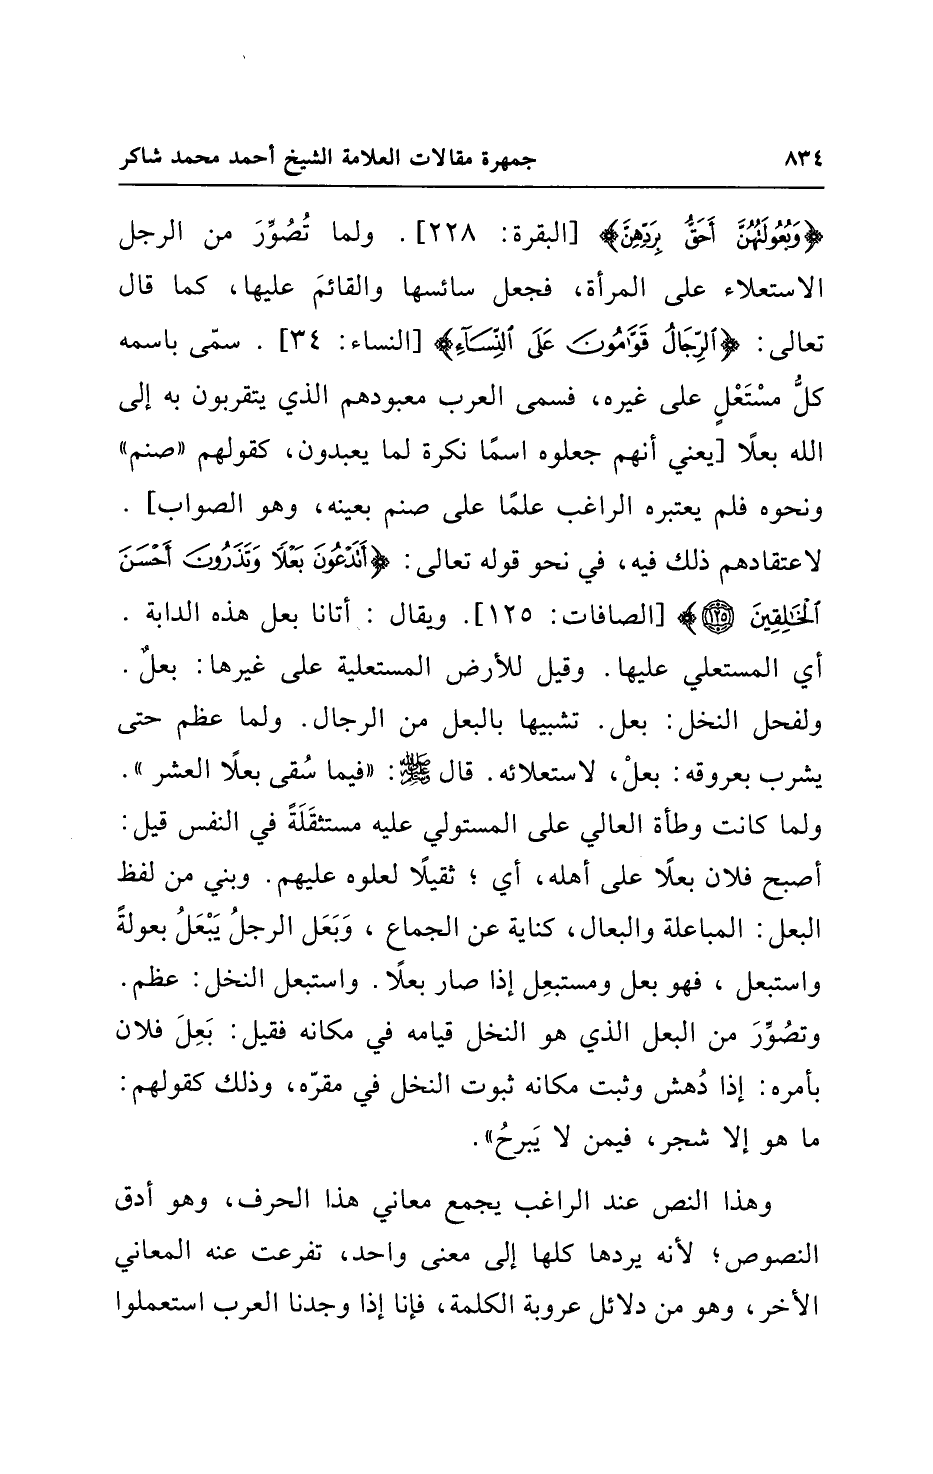 ٨٣٤ جمهرة مقالات العلامة الشيخ أحمد محمد شاكر
﴿وَبُعُولَتُهُنَّ أَحَقُّ بِرَدِّهِنَّ﴾ [البقرة: ٢٢٨] . ولما تُصُوِّرَ من الرجل
الاستعلاء على المرأة، فجعل سائسها والقائمَ عليها، كما قال
تعالى: ﴿ٱلرِّجَالُ قَوَّٰمُونَ عَلَى ٱلنِّسَآءِ﴾ [النساء: ٣٤] . سمّى باسمه
كلُّ مسْتَعْلٍ على غيره، فسمى العرب معبودهم الذي يتقربون به إلى
الله بعلًا [يعني أنهم جعلوه اسمًا نكرة لما يعبدون، كقولهم «صنم»
ونحوه فلم يعتبره الراغب علمًا على صنم بعينه، وهو الصواب] .
لاعتقادهم ذلك فيه، في نحو قوله تعالى: ﴿أَتَدْعُونَ بَعْلًا وَتَذَرُونَ أَحْسَنَ
ٱلْخَٰلِقِينَ ١٢٥﴾ [الصافات: ١٢٥]. ويقال : أتانا بعل هذه الدابة .
أي المستعلي عليها. وقيل للأرض المستعلية على غيرها: بعلٌ .
ولفحل النخل: بعل. تشبيها بالبعل من الرجال. ولما عظم حتى
يشرب بعروقه: بعلْ، لاستعلائه. قال ﷺ: «فيما سُقى بعلًا العشر ».
ولما كانت وطأة العالي على المستولي عليه مستثقَلَةً في النفس قيل:
أصبح فلان بعلًا على أهله، أي ؛ ثقيلًا لعلوه عليهم. وبني من لفظ
البعل: المباعلة والبعال، كناية عن الجماع ، وَبَعَل الرجلُ يَبْعَلُ بعولةً
واستبعل ، فهو بعل ومستبعِل إذا صار بعلًا. واستبعل النخل: عظم.
وتصُوِّرَ من البعل الذي هو النخل قيامه في مكانه فقيل: بَعِلَ فلان
بأمره: إذا دُهش وثبت مكانه ثبوت النخل في مقرّه، وذلك كقولهم:
ما هو إلا شجر، فيمن لا يَبرحُ».
وهذا النص عند الراغب يجمع معاني هذا الحرف، وهو أدق
النصوص؛ لأنه يردها كلها إلى معنى واحد، تفرعت عنه المعاني
الأخر، وهو من دلائل عروبة الكلمة، فإنا إذا وجدنا العرب استعملوا